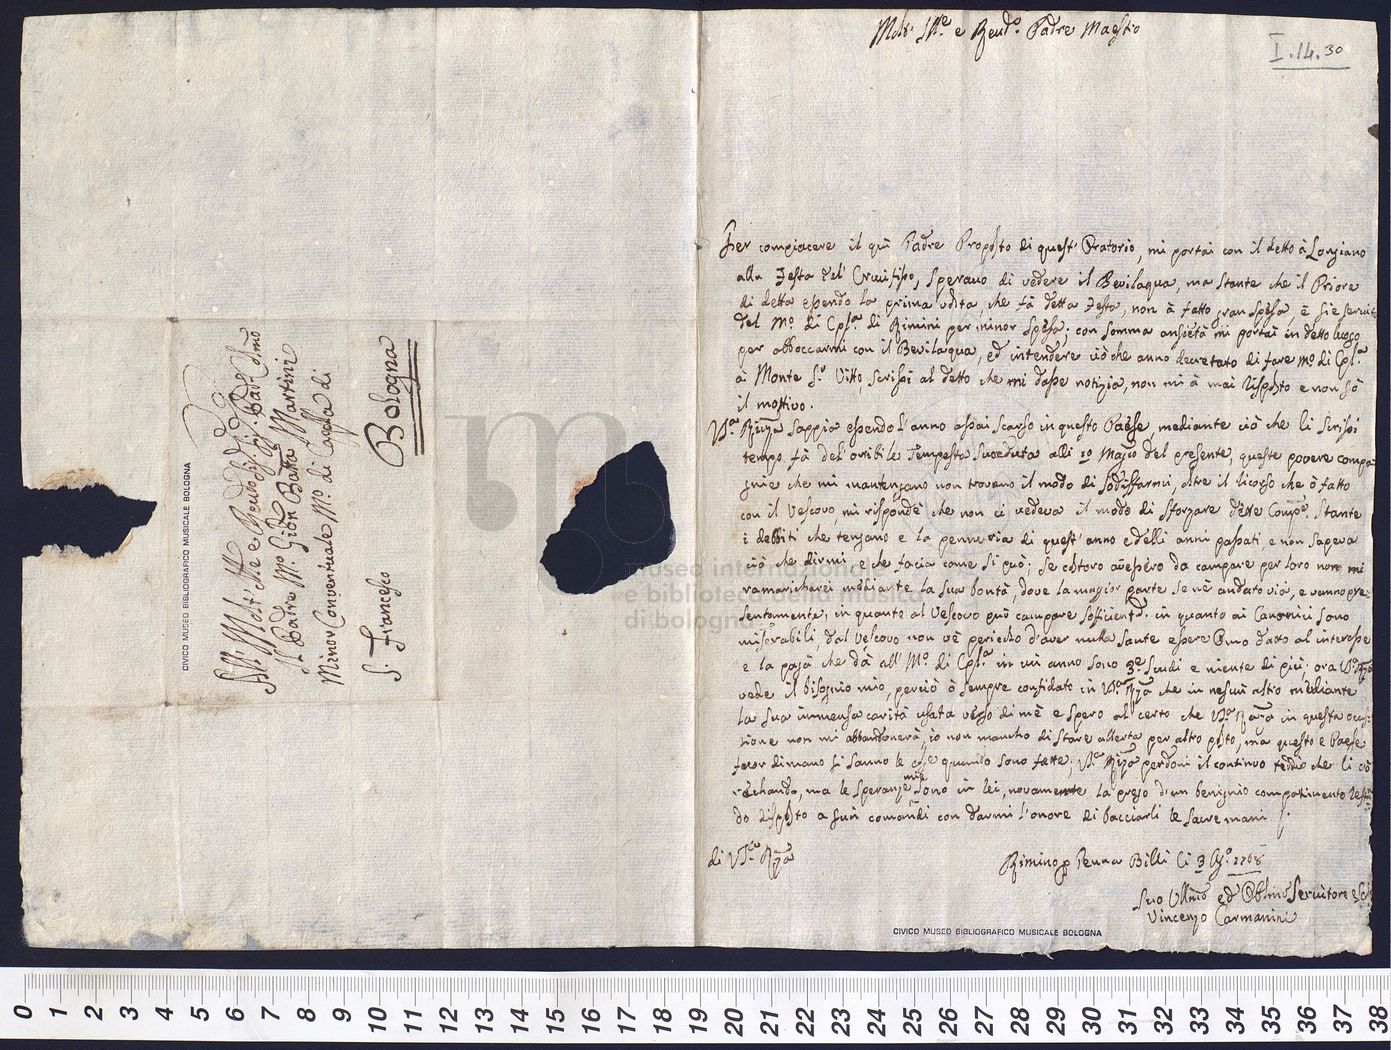 I.14.30
Molt' Ill.re e Reud.o Padre Maestro
Per compiacere il quì Padre Proposto di quest' Oratorio, mi portai con il detto à Longiano
alla Festa del Crucifisso, speravo di vedere il Bevilaqua, ma stante che il Priore
di detta essendo la prima volta, che fà detta Festa, non à fatto gran spesa, e si è servito
del M.o di Cpl.a di Rimini per minor spesa; con somma ansietà mi portai in detto luoco
per abboccarmi con il Bevilaqua, ed intendere ciò che anno decretato di fare M.o di Cpl.a
à Monte S.o Vitto, scrissi al detto che mi dasse notizia, non mi à mai risposto e non sò
il mottivo.
V.a Rv͂za sappia essendo l'anno assai scarso in questo Paese, mediante ciò che li scrissi
tempo fà del' orribile Tempesta succeduta alli 10 Maggio del presente, queste povere compa
gnie che mi mantengano non trovano il modo di sodisfarmi, oltre il ricorso che ò fatto
con il Vescovo, mi rispondè che non ci vedeva il modo di sforzare dette Comp.e stante
i debbiti che tengano e la pennuria di quest' anno e delli anni passati, e non sapeva
ciò che dirmi, e che facia come si può; se costoro avessero da campare per loro non mi
ramaricherei mediante la sua bontà, dove la magior parte se nè andato via, e vanno pre
sentemente; in quanto al Vescovo può campare sofficientem. in quanto ai Canonici sono
miserabili, dal Vescovo non vè pericolo d'aver nulla stante essere Omo datto al interesse
e la paga che dà all' M.o di Cpl.a in un anno sono 30 scudi e niente di più; ora V.a Rv͂za
vede il bisognio mio, perciò ò sempre confidato in V.a Rv͂za che in nesun altro mediante
la sua immensa carità usata verso di mè e spero al certo che V.a Rv͂za in questa occa-
sione non mi abbandonerà, io non mancho di stare allerta per altro posto, ma questo è Paese
fuor di mano si sanno le cose quando sono fatte; V.a Rv͂za perdoni il continuo teddio che li vò
rechando, ma le speranze mie sono in lei, novamente la prego d'un benignio compatimento restan
do disposto a suoi comandi con darmi l'onore di bacciarli le sacre mani
di V.a Rv͂za
Rimino p Penna Billi li 3 Ag.o 1768
Suo Um͂o ed Obb͂mo Servitore
Vincenzo Carmanini
CIVICO MUSEO BIBLIOGRAFICO MUSICALE BOLOGNA
All' Molt' Ill.re e Reud.o
Il Padre M.ro Gio: Batta Martini
Minor Conventuale M.ro di Capella di
S. Francesco
Bologna
CIVICO MUSEO BIBLIOGRAFICO MUSICALE BOLOGNA
museo internazionale
e biblioteca della musica
di bologna
0 1 2 3 4 5 6 7 8 9 10 11 12 13 14 15 16 17 18 19 20 21 22 23 24 25 26 27 28 29 30 31 32 33 34 35 36 37 38